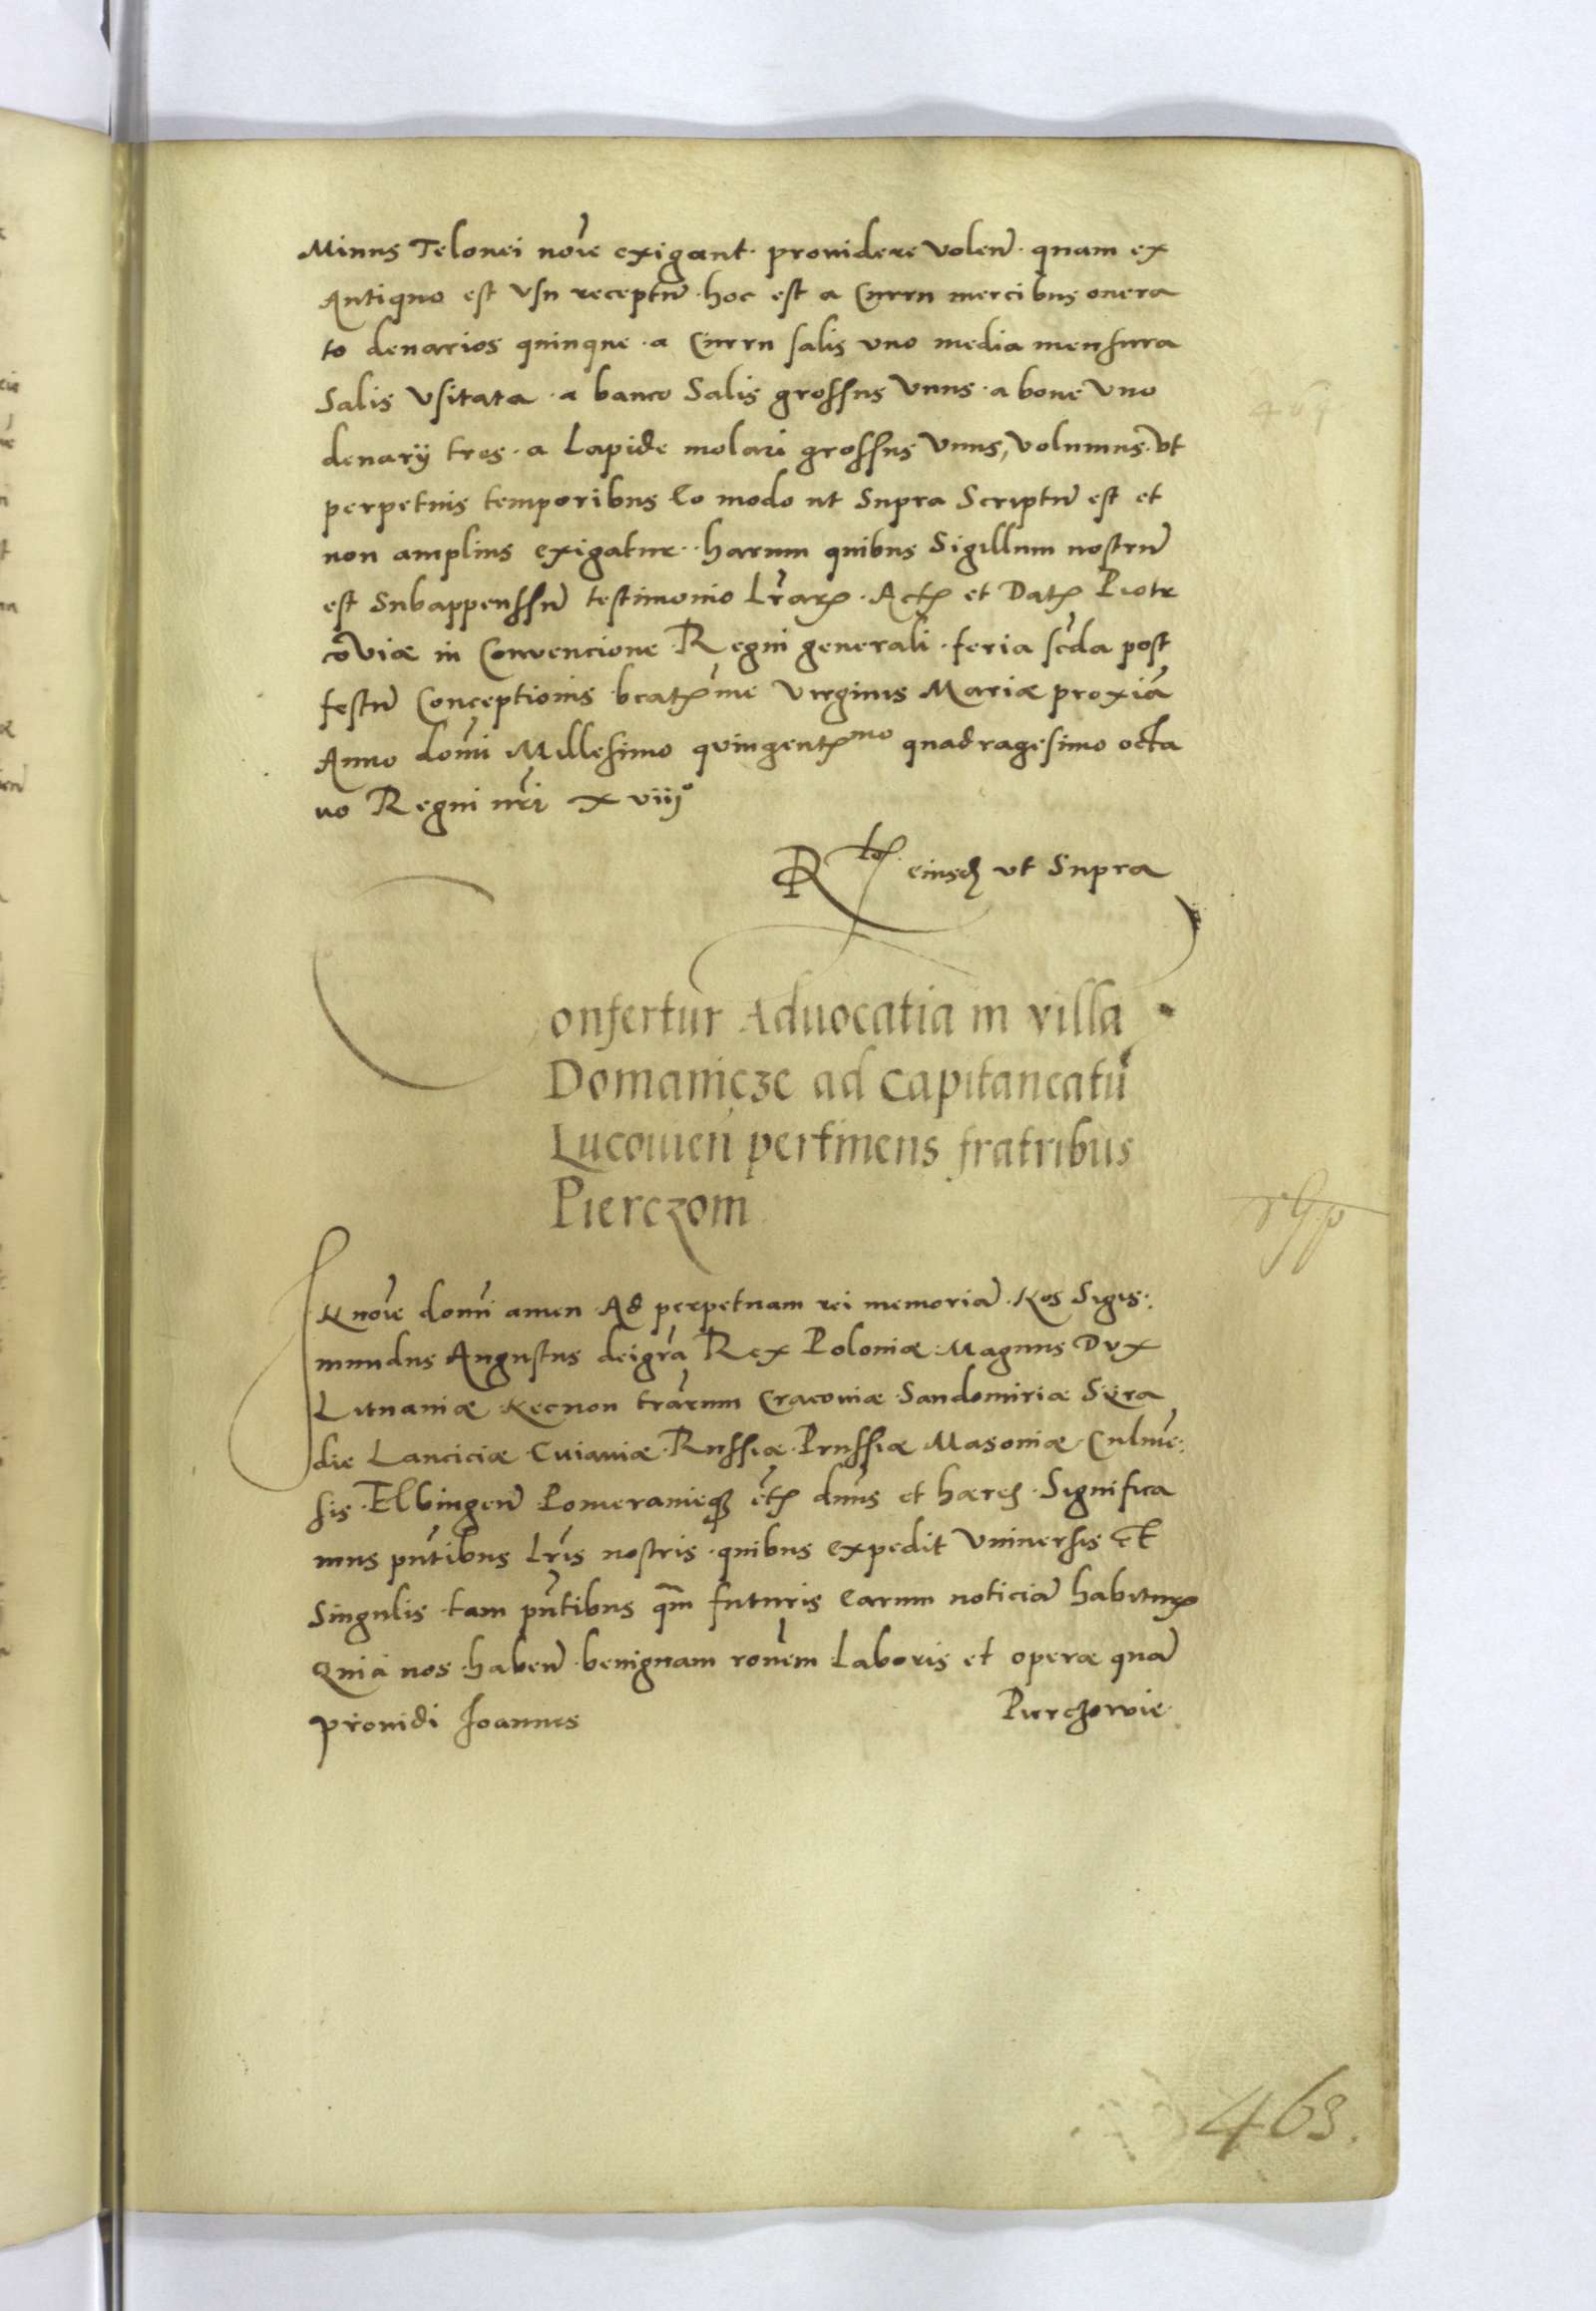 Minus Telonei noīe exigant · prouidere volen̄ · quam ex
Antiquo est vsu receptū · hoc est a Curru mercibus onera
to denarios quinque · a Curru salis vno media mensura
Salis vsitata · a banco Salis grossus vnus · a boue vno
denarij tres · a Lapide molari grossus vnus, volumus · vt
perpetuis temporibus Eo modo ut Supra Scriptū est et
non amplius exigatur · harum quibus Sigillum nostrū
est Subappenssū testimonio Lrārꝝ · Actꝭ et Datꝭ Piotr
coviæ in Convencione Regni generali · feria scđa post
festū Conceptionis beatꝭīme virginis Mariæ proxiā
Anno domī Millesimo quingentꝭmo quadragesimo octa
uo Regni nrī xviij°
Rtꝭ eiusđ vt Supra
onfertur Aduocatia in villa
Domanicze ad Capitaneatū
Lucouien̄ pertinens fratribus
Pierczom
In noīe domī amen Ad perpetuam rei memoriā · Nos Sigis:
mundus Augustus dei grā Rex Poloniæ Magnus Dux
Lituaniæ Necnon trārum Cracouiæ Sandomiriæ Syra
die Lanciciæ Cuiauiæ Russiæ Prussiæ Masoniæ Culmē:
sis · Elbingen̄ Pomeranieqꝫ etꝭ dn̄us et hæres · Significa
mus pn̄tibus Lrīs nostris · quibus expedit vniuersis Et
Singulis tam pn̄tibus qm̄ futuris earum noticiā habiturꝭ
Quia nos haben̄ benignam ronēm Laboris et operæ quā
prouidi Joannes Pierczowie
463.